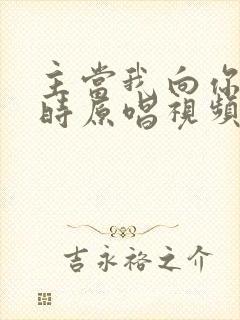 主當我向你
時原唱視頻
吉永裕之介